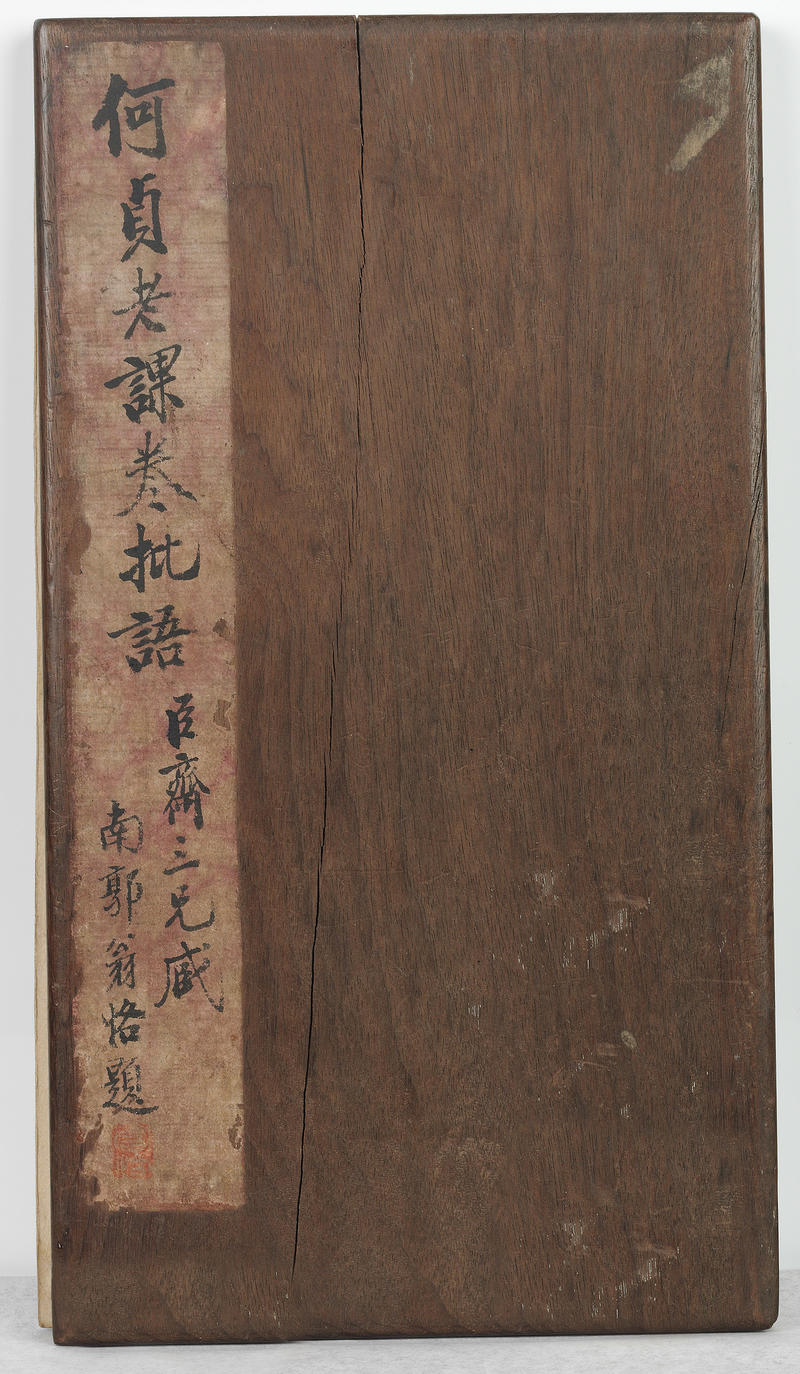 何貞老課卷批語
臣齋三兄藏
南郭翁恪題